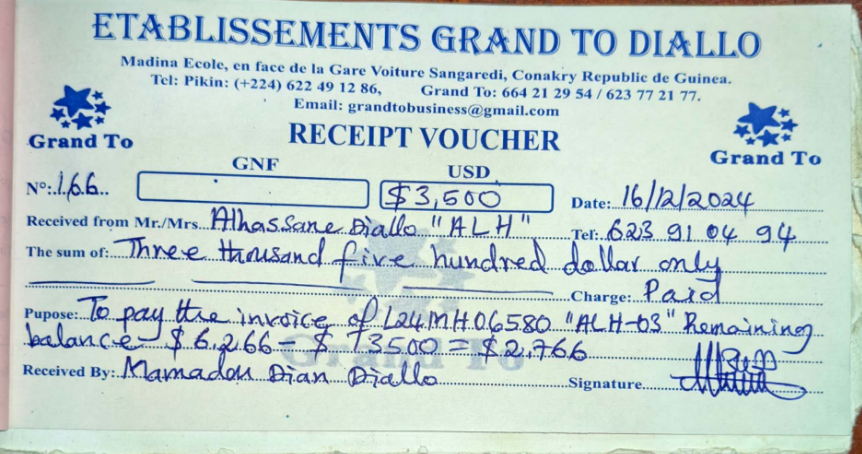 ETABLISSEMENTS GRAND TO DIALLO
Madina Ecole, en face de la Gare Voiture Sangaredi, Conakry Republic de Guinea.
Tel: Pikin: (+224) 622 49 12 86, Grand To: 664 21 29 54 / 623 77 21 77.
Email: grandtobusiness@gmail.com
Grand To
RECEIPT VOUCHER
Grand To
GNF USD
N°: 166 $3,500 Date: 16/12/2024
Received from Mr./Mrs. Alhassane Diallo "ALH" Tel: 623 91 04 94
The sum of: Three thousand five hundred dollar only
Charge: Paid
Pupose: To pay the invoice of L24MH06580 "ALH-03" Remaining
balance $6,266 - $3500 = $2,766
Grand To
Received By: Mamadou Dian Diallo Signature